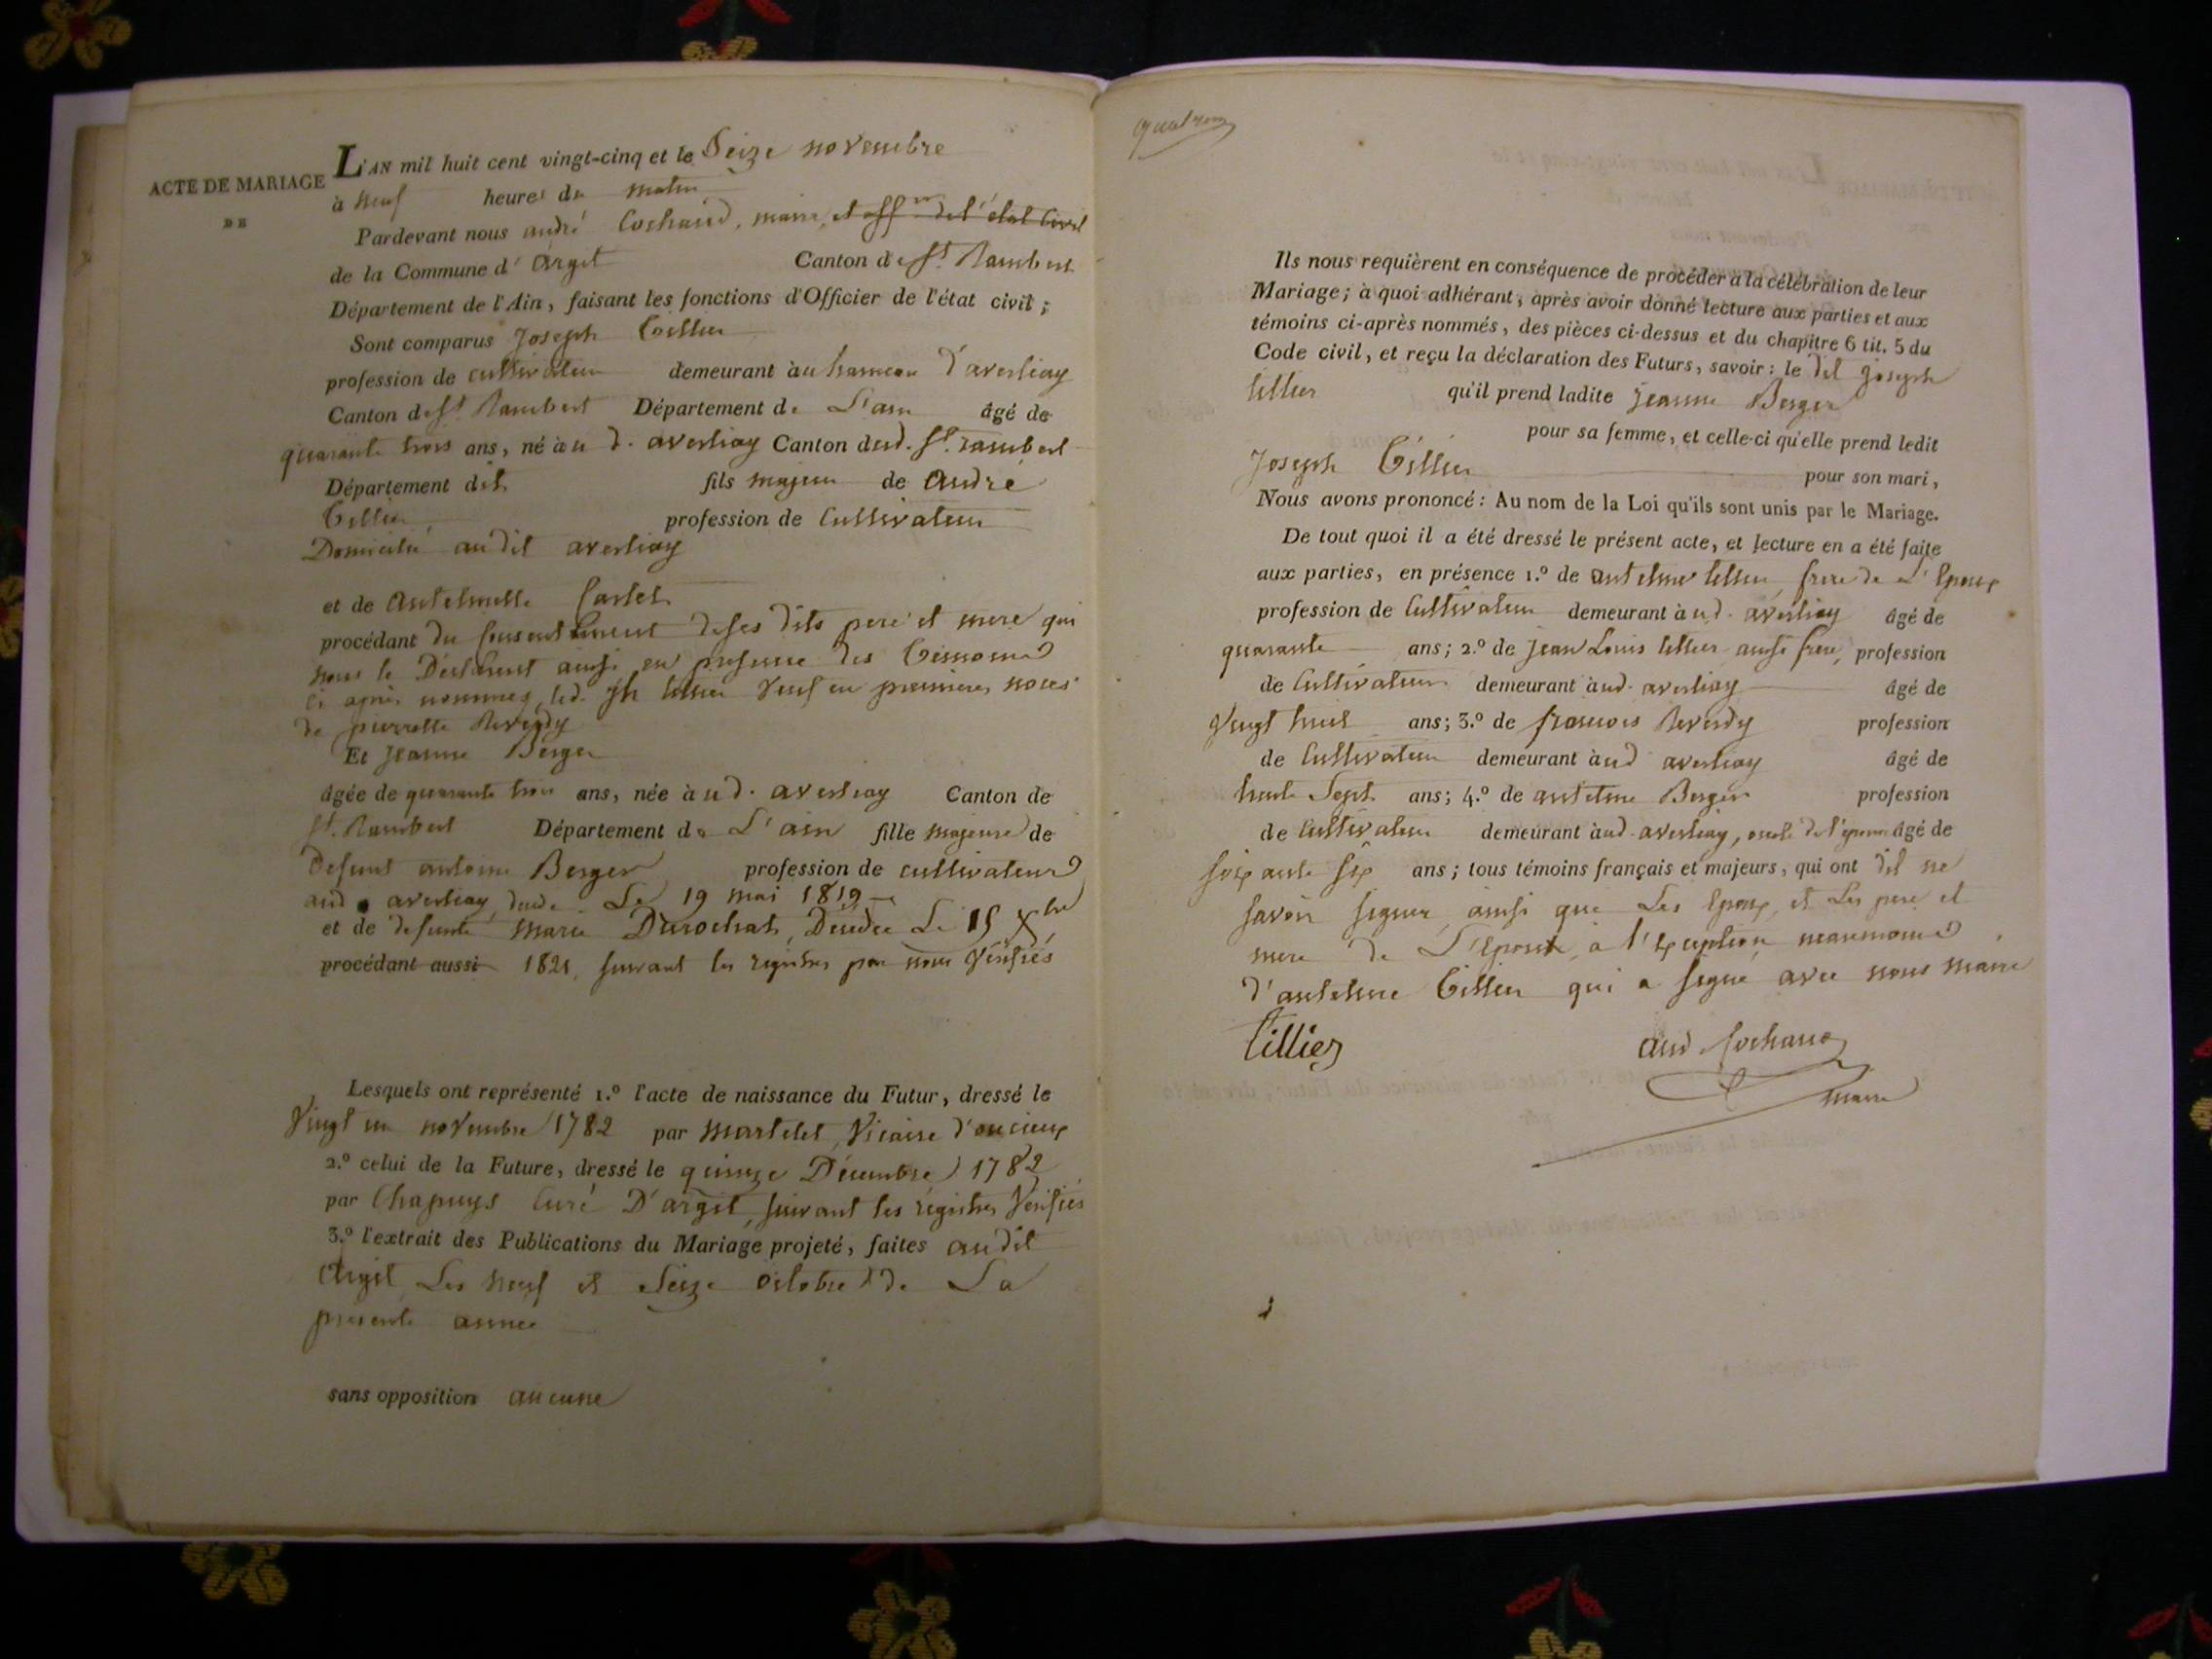 ACTE DE MARIAGE
DE
L'AN mil huit cent vingt-cinq et le Seize novembre
à neuf heures du matin
Pardevant nous andré Cochaud, maire, et offer de l'état Civil
de la Commune d' argit Canton de St. Rambert
Département de l'Ain, faisant les fonctions d'Officier de l'état civil;
Sont comparus Joseph Tillier
profession de cultivateur demeurant àu hameau d'averliay
Canton de St Rambert Département de L'ain âgé de
quarante trois ans, né àu d. averliay Canton dud. St. rambert
Département dit fils majeur de andré
Tillier profession de Cultivateur
Domicilié audit averliay
et de antelmette
procédant du Consentement de ses dits pere et mere qui
nous le Déclarent ainsi en presence des Témoins
ci après nommés, led. jh tillier Veuf en premieres noces
de pierrette Reverdy
Et jeanne Berger
âgée de quarante trois ans, née à ud. averliay Canton de
St. Rambert Département de L'ain fille majeure de
Defunt antoine Berger profession de cultivateur
aud averliay décédé Le 19 mai 1819
et de defunte marie Durochat, Décédée Le 15 Xbre
procédant aussi 1821, suivant les registres par nous Vérifiés
Lesquels ont représenté 1.º l'acte de naissance du Futur, dressé le
Vingt un novembre 1782 par martelet, Vicaire d'oncieux
2.º celui de la Future, dressé le quinze Décembre 1782
par Chapuys Curé D'argit, suivant les registres Vérifiés
3.º l'extrait des Publications du Mariage projeté, faites audit
Argit Les neuf et Seize octobre de La
présente année
sans opposition aucune
Ils nous requièrent en conséquence de procéder à la célébration de leur
Mariage; à quoi adhérant, après avoir donné lecture aux parties et aux
témoins ci-après nommés, des pièces ci-dessus et du chapitre 6 tit. 5 du
Code civil, et reçu la déclaration des Futurs, savoir: le dit joseph
tillier qu'il prend ladite jeanne Berger
pour sa femme, et celle-ci qu'elle prend ledit
Joseph Tillier pour son mari,
Nous avons prononcé: Au nom de la Loi qu'ils sont unis par le Mariage.
De tout quoi il a été dressé le présent acte, et lecture en a été faite
aux parties, en présence 1.º de antelme tillier, frere de L'Epoux
profession de Cultivateur demeurant à ud. averliay âgé de
quarante ans; 2.º de jean Louis tillier aussi frere, profession
de Cultivateur demeurant àud. averliay âgé de
Vingt huit ans; 3.º de francois Reverdy profession
de Cultivateur demeurant àud averliay âgé de
trente Sept ans; 4.º de antelme Berger profession
de Cultivateur demeurant àud. averliay, oncle de l'épouse âgé de
soixante six ans; tous témoins français et majeurs, qui ont dit ne
savoir signer, ainsi que Les Epoux, et Les pere et
mere de L'Epoux, a l'exception neanmoins
d'antelme Tillier qui a signé avec nous maire
tillier
and Cochaud
maire